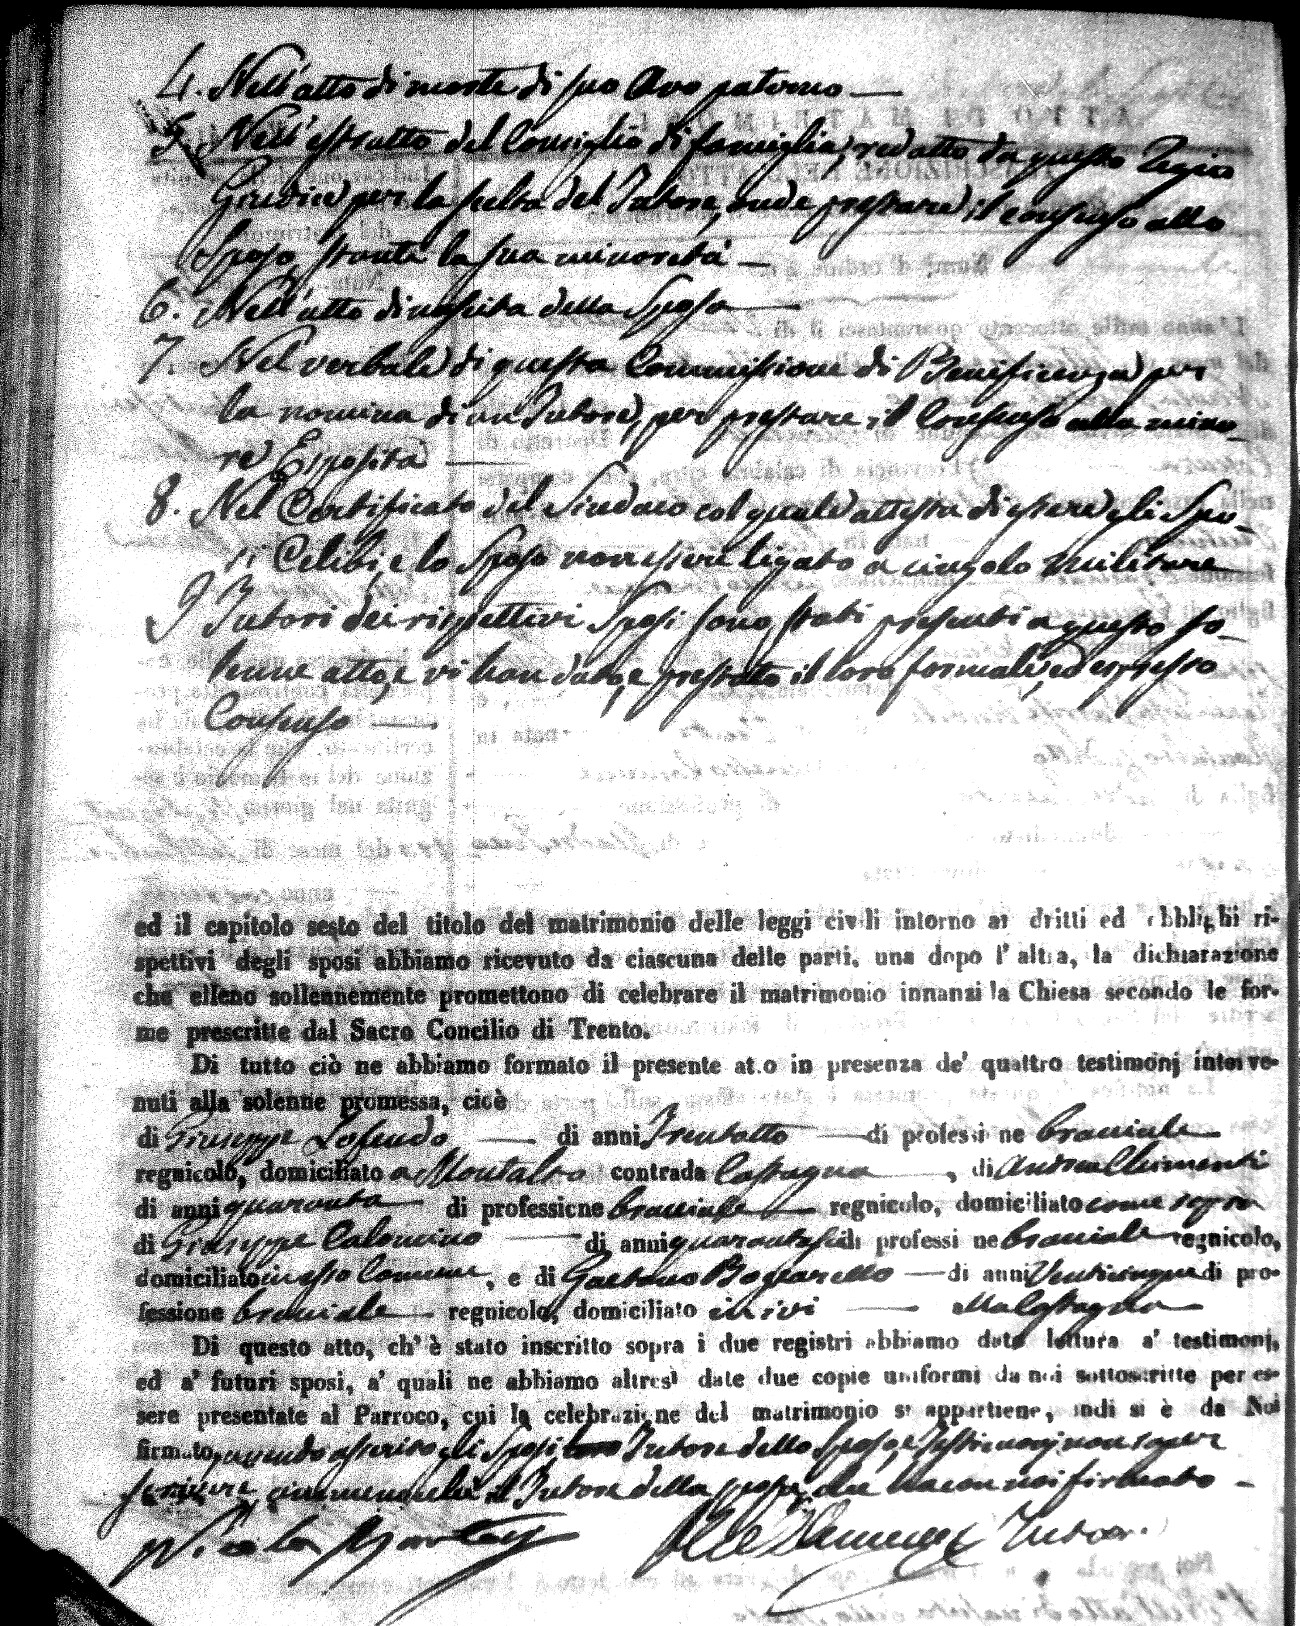 4. Nell'atto di morte di suo Avo paterno —
5. Nell'estratto del Consiglio di famiglia, redatto da questo Regio
Giudice per la scelta del Tutore, onde prestare il consenso allo
Sposo, stante la sua minoretà —
6. Nell'atto di nascita della Sposa —
7. Nel verbale di questa Commissione di Beneficenza per
la nomina di un Tutore, per prestare il Consenso alla mino-
re Esposita —
8. Nel Certificato del Sindaco col quale attesta di essere gli Spo-
si Celibi, e lo Sposo non essere ligato a cingolo militare
9 Tutori dei rispettivi Sposi sono stati presenti a questo so-
lenne atto, e vi han dato, e prestato il loro formale, ed espresso
Consenso —
ed il capitolo sesto del titolo del matrimonio delle leggi civili intorno ai dritti ed obblighi ri-
spettivi degli sposi abbiamo ricevuto da ciascuna delle parti, una dopo l'altra, la dichiarazione
che elleno sollennemente promettono di celebrare il matrimonio innanzi la Chiesa secondo le for-
me prescritte dal Sacro Concilio di Trento.
Di tutto ciò ne abbiamo formato il presente atto in presenza de' quattro testimonj interve-
nuti alla solenne promessa, cioè
di Giuseppe Lofeudo — di anni Trentotto — di professione bracciale —
regnicolo, domiciliato a Montalto contrada Castagna —, di Andrea Chimenti
di anni quaranta — di professione bracciale — regnicolo, domiciliato come sopra
di Giuseppe Calomino — di anni quarantasei di professione bracciale regnicolo,
domiciliato in esso Comune, e di Gaetano — di anni Venticinque di pro-
fessione bracciale — regnicolo, domiciliato in ivi —
Di questo atto, ch'è stato inscritto sopra i due registri abbiamo dato lettura a' testimonj,
ed a' futuri sposi, a' quali ne abbiamo altresì date due copie uniformi da noi sottoscritte per es-
sere presentate al Parroco, cui la celebrazione del matrimonio si appartiene, indi si è da Noi
firmato, avendo asserito gli Sposi, Tutore dello Sposo, e Testimonj non saper
scrivere, ammenochè il Tutore della sposa, che ha con noi firmato —
Nicola Tutore